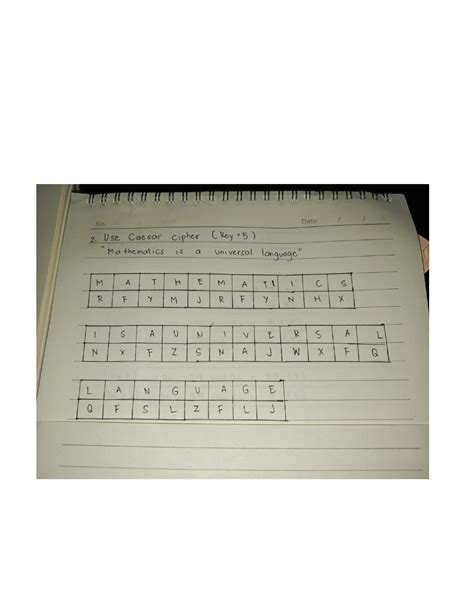 No.
Date: / /
2. Use Caesar cipher (key = 5)
"Mathematics is a universal language"
M A T H E M A T I C S
R F Y M J R F Y N H X
I S A U N I V E R S A L
N X F Z S N A J W X F Q
L A N G U A G E
Q F S L Z F L J